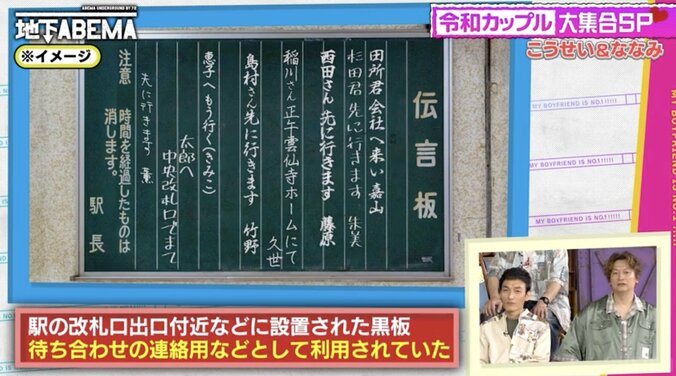 ABEMA UNDERGROUND BY 72
地下ABEMA
※イメージ
令和カップル大集合SP
こうせい&ななみ
伝言板
田所君 会社へ来い 嘉山
杉田君 先に行きます 朱美
西田さん 先に行きます 藤原
稲川さん 正午雲仙寺ホームにて 久世
島村さん先に行きます 竹野
恵子へ もう行く(きみこ)
太郎へ
中央改札口でまて
先に行きます 薫
注意 時間を経過したものは
消します。
駅長
MY BOYFRIEND IS NO.1!!!!!
MY BOYFRIEND IS NO.1!!!!!
MY BOYFRIEND IS NO.1!!!!!
駅の改札口出口付近などに設置された黒板
待ち合わせの連絡用などとして利用されていた